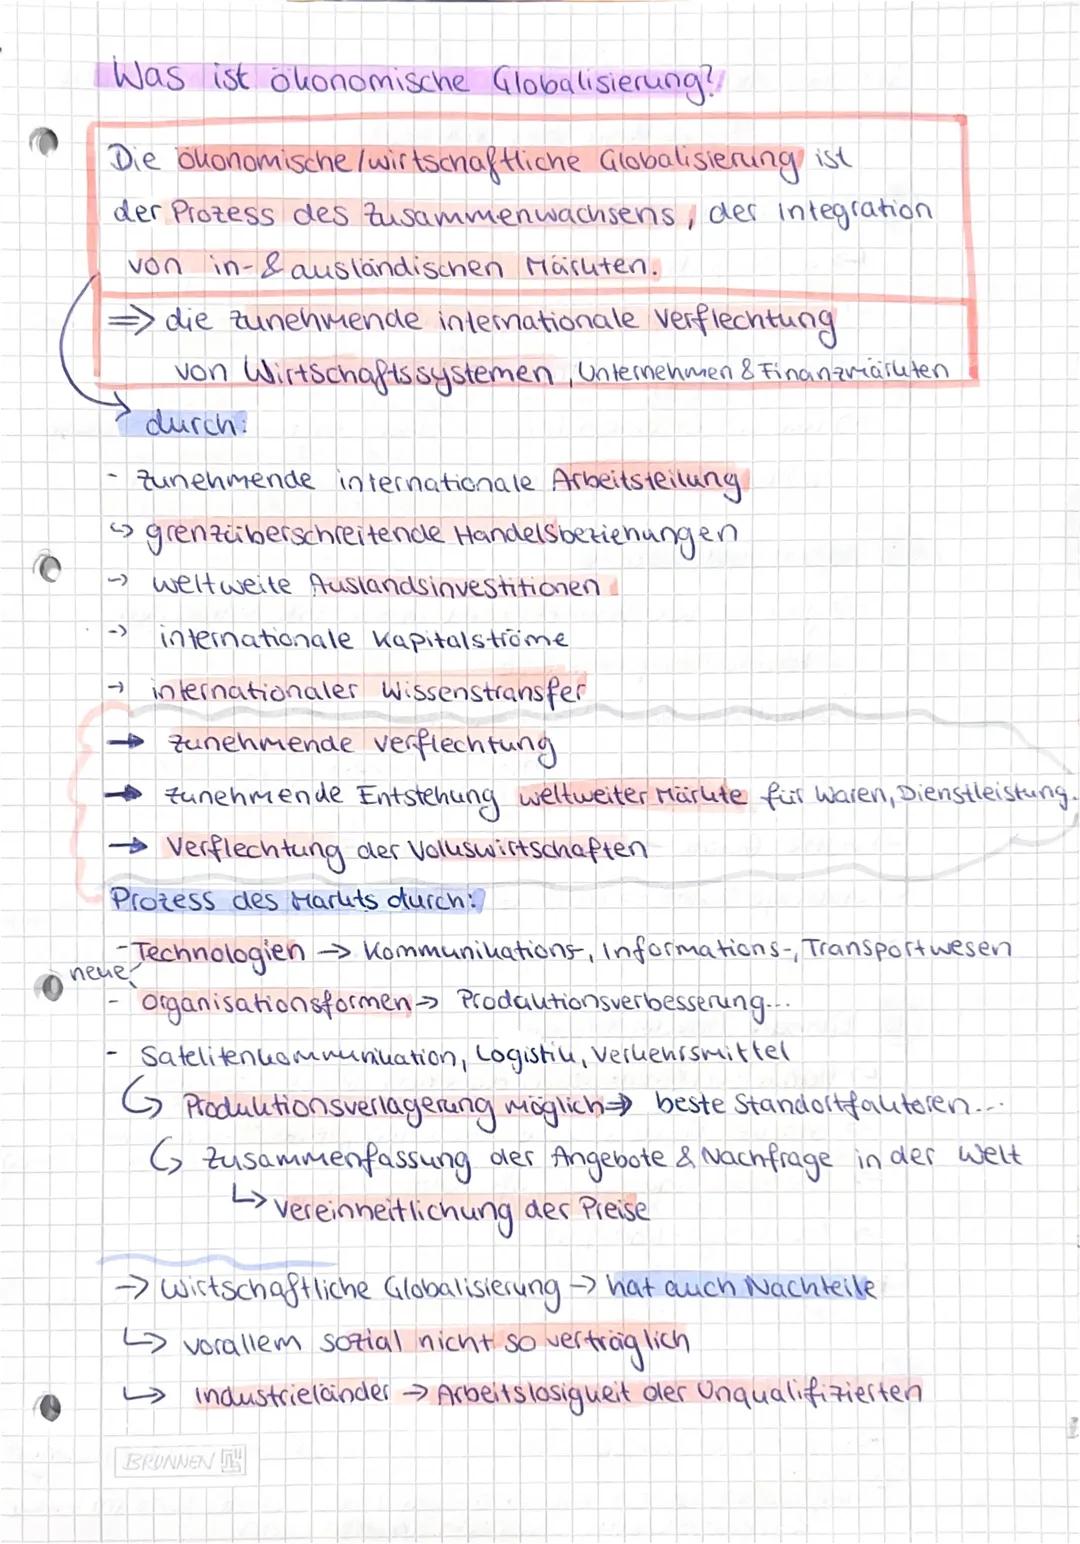 Was ist ökonomische Globalisierung?
Die ökonomische/wirtschaftliche Globalisierung ist
der Prozess des Zusammenwachsens, der Integration
von in- & ausländischen Märkten.
=> die zunehmende internationale Verflechtung
von Wirtschaftssystemen, Unternehmen & Finanzmärkten
durch:
- zunehmende internationale Arbeitsteilung
↪ grenzüberschreitende Handelsbeziehungen
→ weltweite Auslandsinvestitionen
→ internationale Kapitalströme
→ internationaler Wissenstransfer
→ zunehmende Verflechtung
→ zunehmende Entstehung weltweiter Märkte für Waren, Dienstleistung.
→ Verflechtung der Volkswirtschaften
Prozess des Markts durch:
- Technologien → Kommunikations-, Informations-, Transportwesen
neue
- Organisationsformen → Produktionsverbesserung...
- Satelitenkommunikation, Logistik, Verkehrsmittel
↪ Produktionsverlagerung möglich => beste Standortfaktoren...
↪ Zusammenfassung der Angebote & Nachfrage in der Welt
↳ Vereinheitlichung der Preise
→ Wirtschaftliche Globalisierung → hat auch Nachteile
↳ vorallem sozial nicht so verträglich
↳ Industrieländer → Arbeitslosigkeit der Unqualifizierten
BRUNNEN